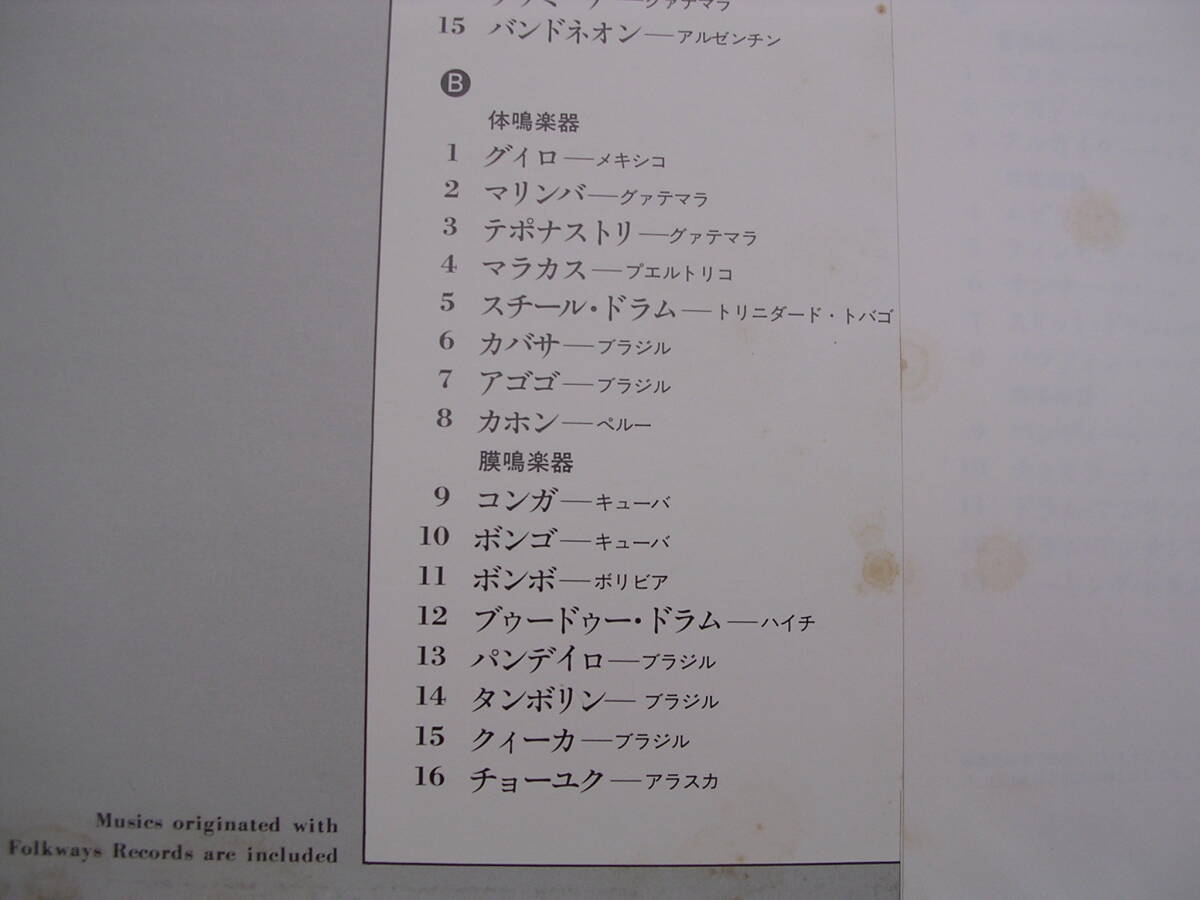 15 バンドネオン—アルゼンチン
B
体鳴楽器
1 グイロ—メキシコ
2 マリンバ—グァテマラ
3 テポナストリ—グァテマラ
4 マラカス—プエルトリコ
5 スチール・ドラム—トリニダード・トバゴ
6 カバサ—ブラジル
7 アゴゴ—ブラジル
8 カホン—ペルー
膜鳴楽器
9 コンガ—キューバ
10 ボンゴ—キューバ
11 ボンボ—ボリビア
12 ブゥードゥー・ドラム—ハイチ
13 パンデイロ—ブラジル
14 タンボリン—ブラジル
15 クィーカ—ブラジル
16 チョーユク—アラスカ
Musics originated with
Folkways Records are included